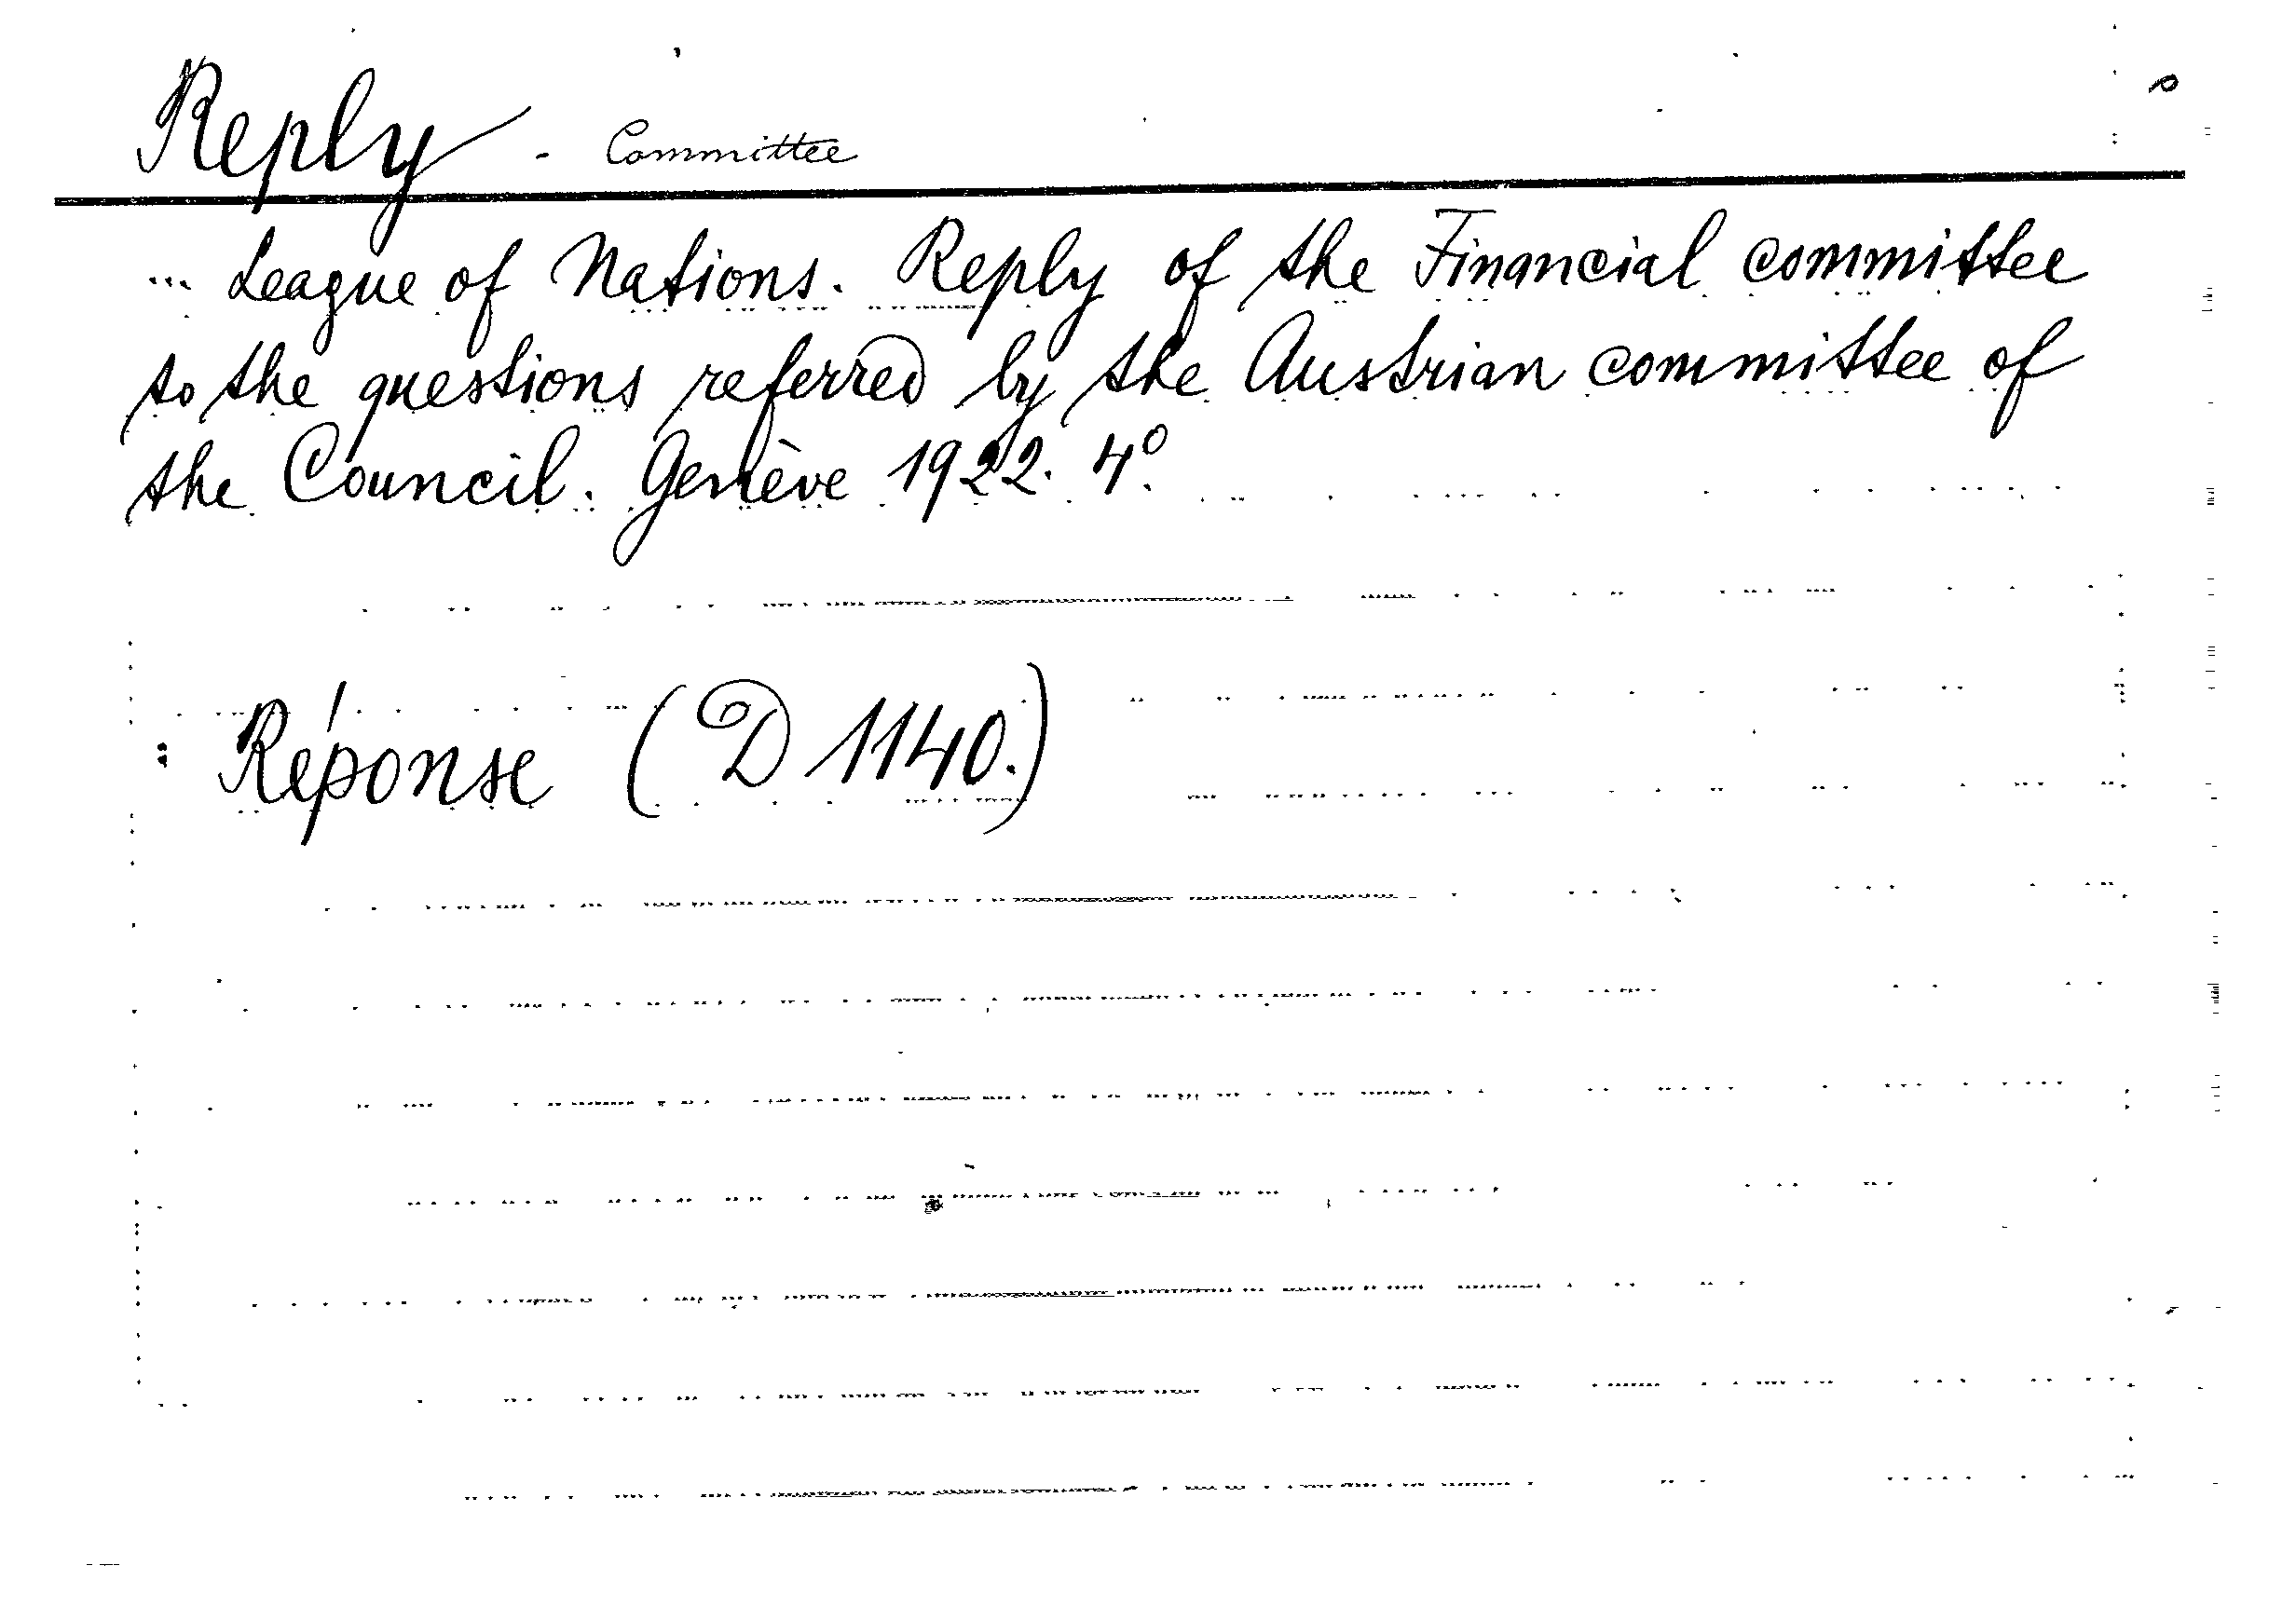 Reply - Committee
... League of Nations. Reply of the Financial committee
to the questions referred by the Austrian committee of
the Council. Genève 1922. 4º.
: Réponse (D 1140.)